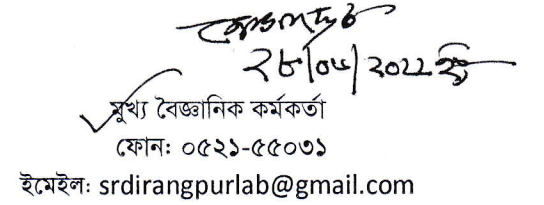 ২৮/০৮/২০২২ইং
মুখ্য বৈজ্ঞানিক কর্মকর্তা
ফোন: ০৫২১-৫৫০৩১
ইমেইল: srdirangpurlab@gmail.com